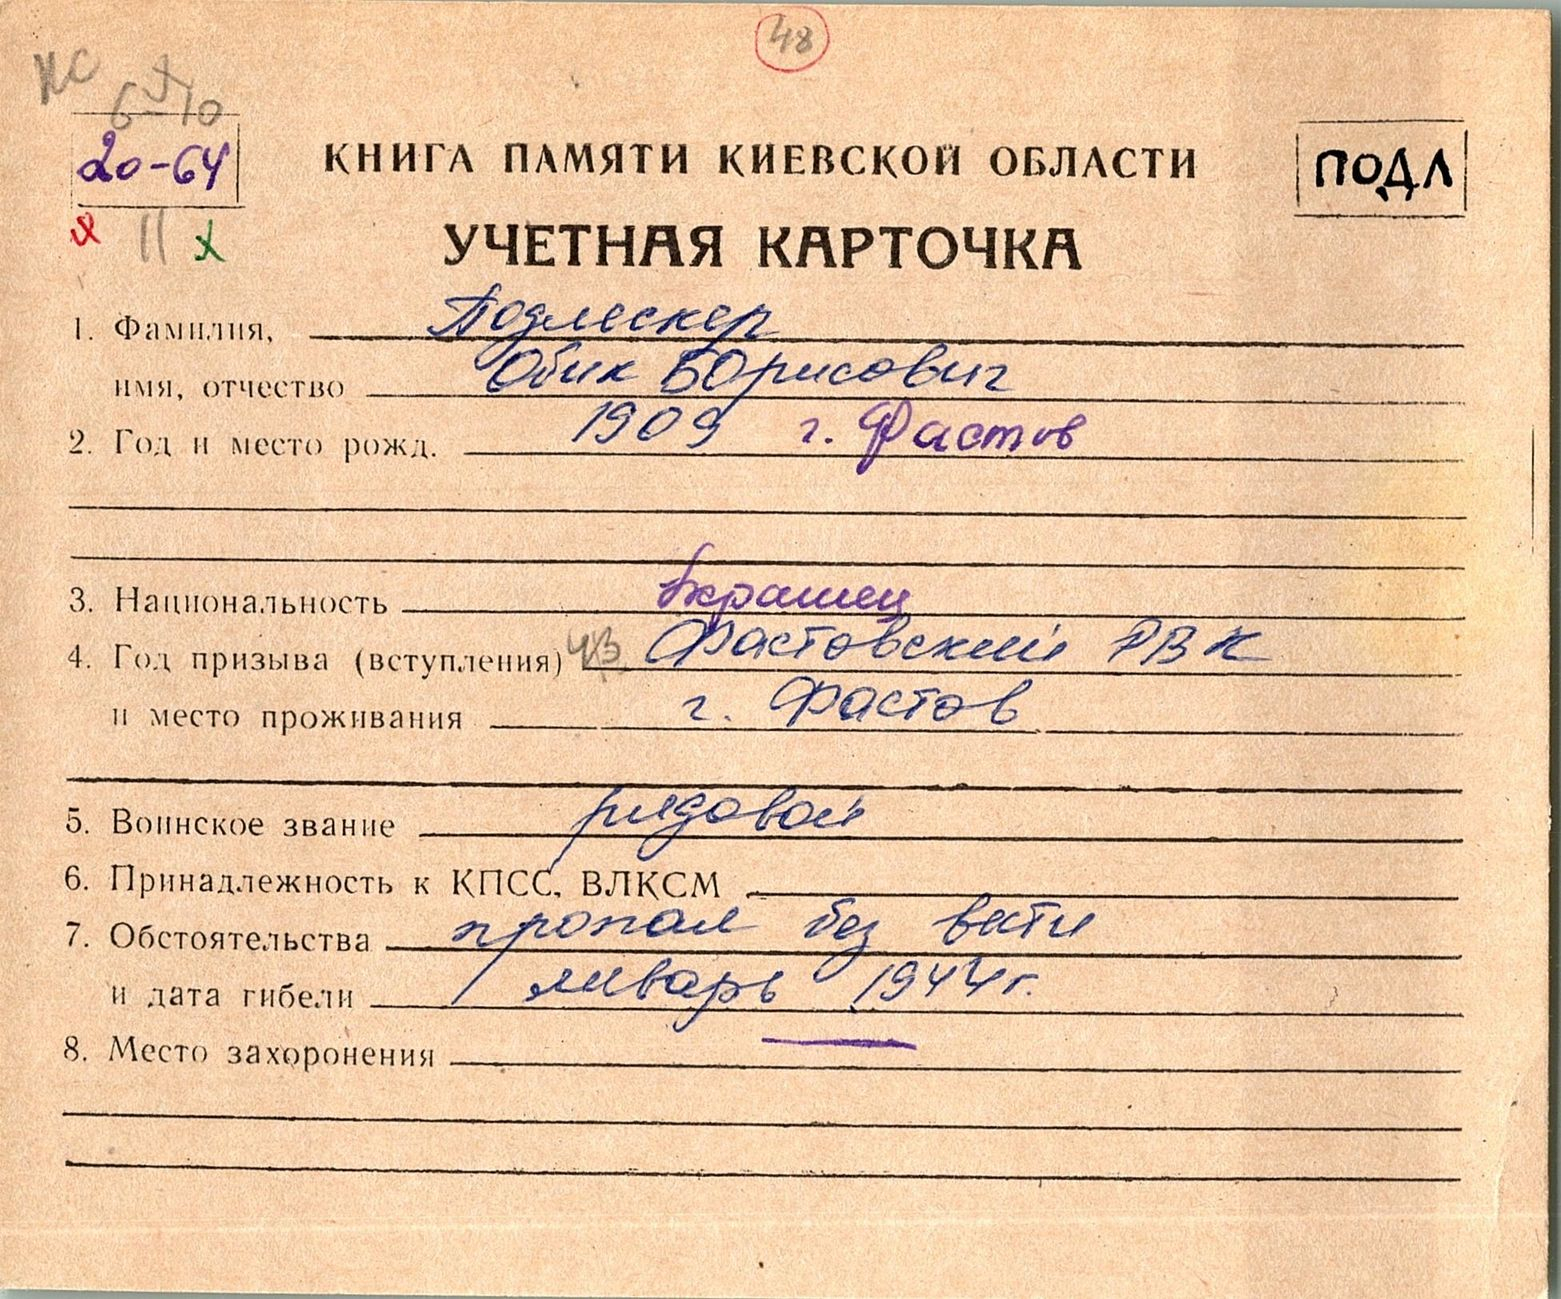 48
НС
6 10
20-64
КНИГА ПАМЯТИ КИЕВСКОЙ ОБЛАСТИ
ПОДЛ
х II х
УЧЕТНАЯ КАРТОЧКА
1. Фамилия, Подлескер
имя, отчество Обик Борисович
2. Год и место рожд. 1909 г. Фастов
3. Национальность Украинец
4. Год призыва (вступления) Фастовский РВК
и место проживания г. Фастов
5. Воинское звание рядовой
6. Принадлежность к КПСС, ВЛКСМ
7. Обстоятельства пропал без вести
и дата гибели январь 1944 г.
8. Место захоронения —